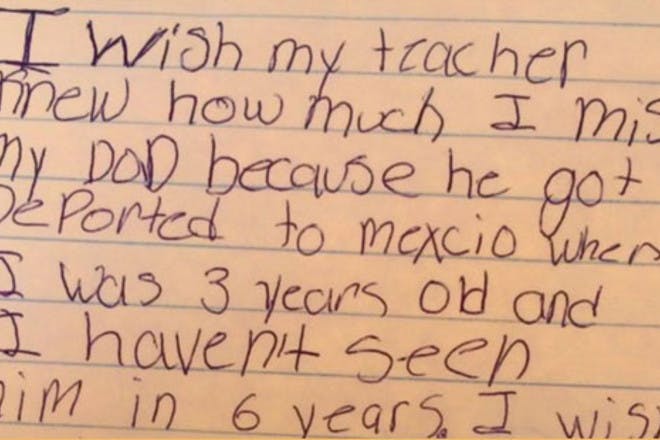 I wish my teacher
knew how much I mis
my DaD because he got
DePorted to mexcio when
I was 3 years old and
I haven't seen
him in 6 years. I wis